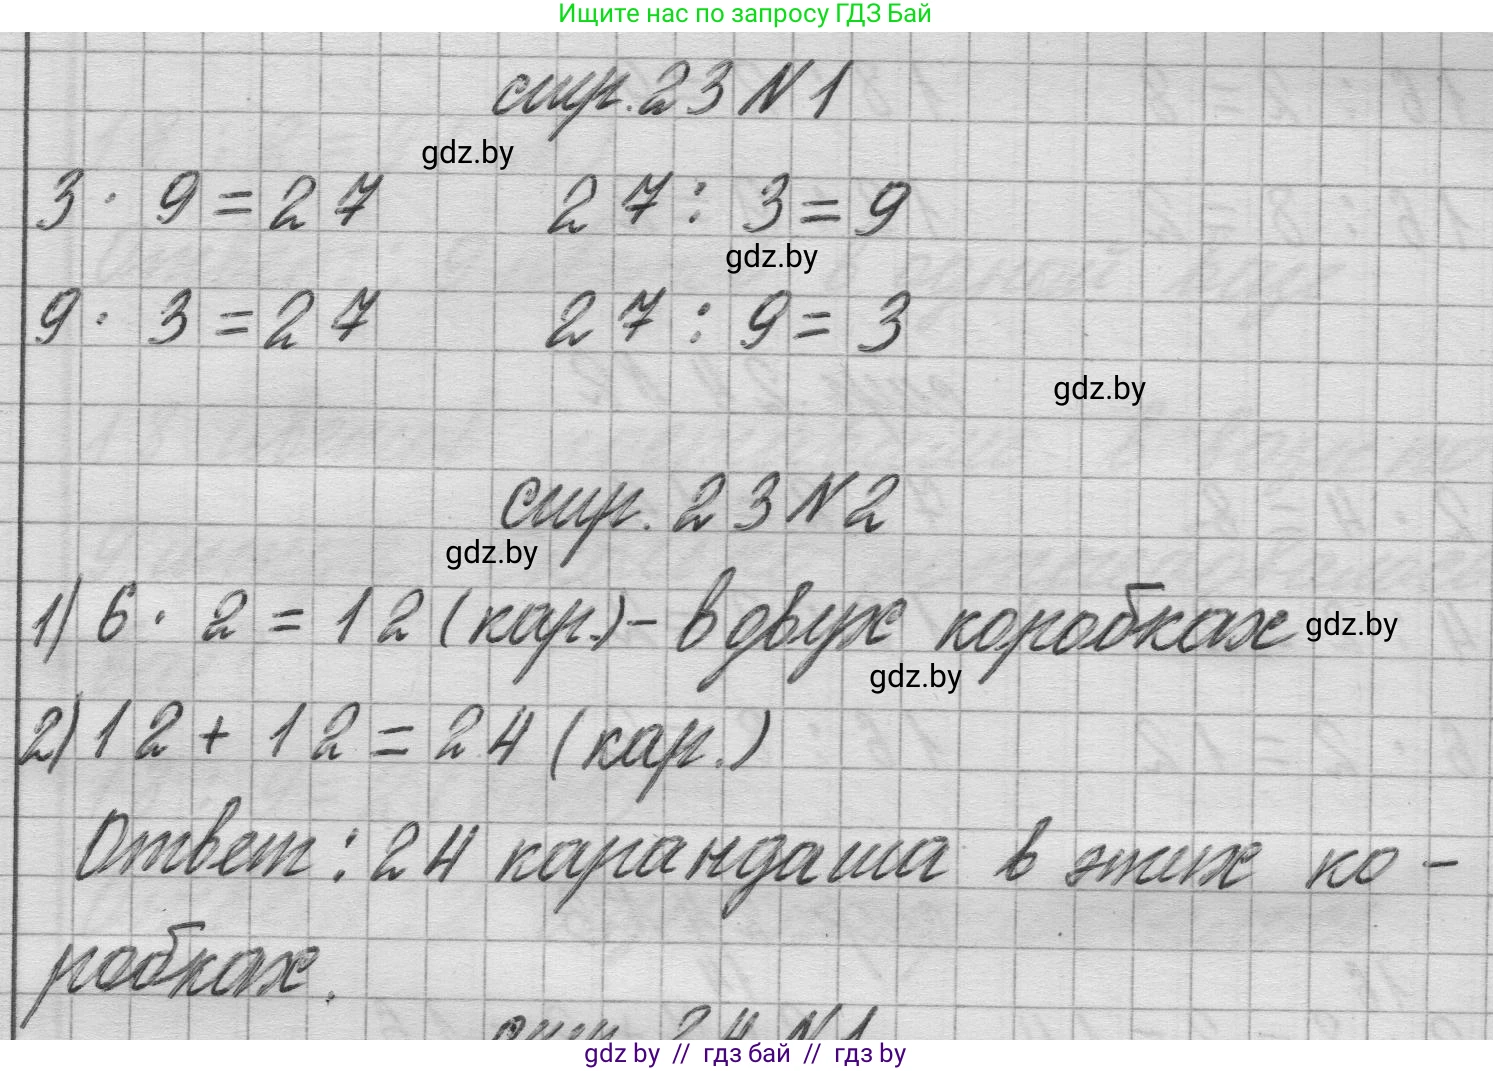 Ищите нас по запросу ГДЗ Бай
стр. 23 N 1
gdz.by
3 · 9 = 27 27 : 3 = 9
gdz.by
9 · 3 = 27 27 : 9 = 3
gdz.by
стр. 23 N 2
gdz.by
1) 6 · 2 = 12 (кар.) – в двух коробках
gdz.by
gdz.by
2) 12 + 12 = 24 (кар.)
Ответ : 24 карандаша в этих ко-
робках.
стр. 24 N 1
gdz by // гдз бай // гдз by